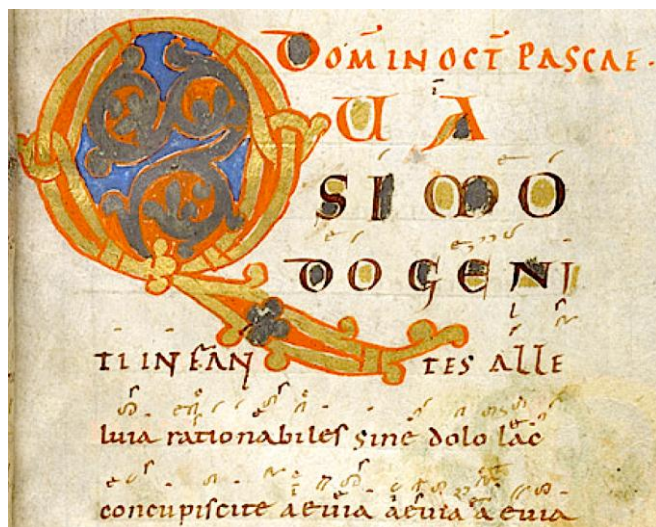 DOM̄ IN OCT̄ PASCAE.
QUA
SIMO
DO GENI
TI IN FAN TES ALLE
luia rationabiles sine dolo lac
concupiscite aeuia aeuia aeuia